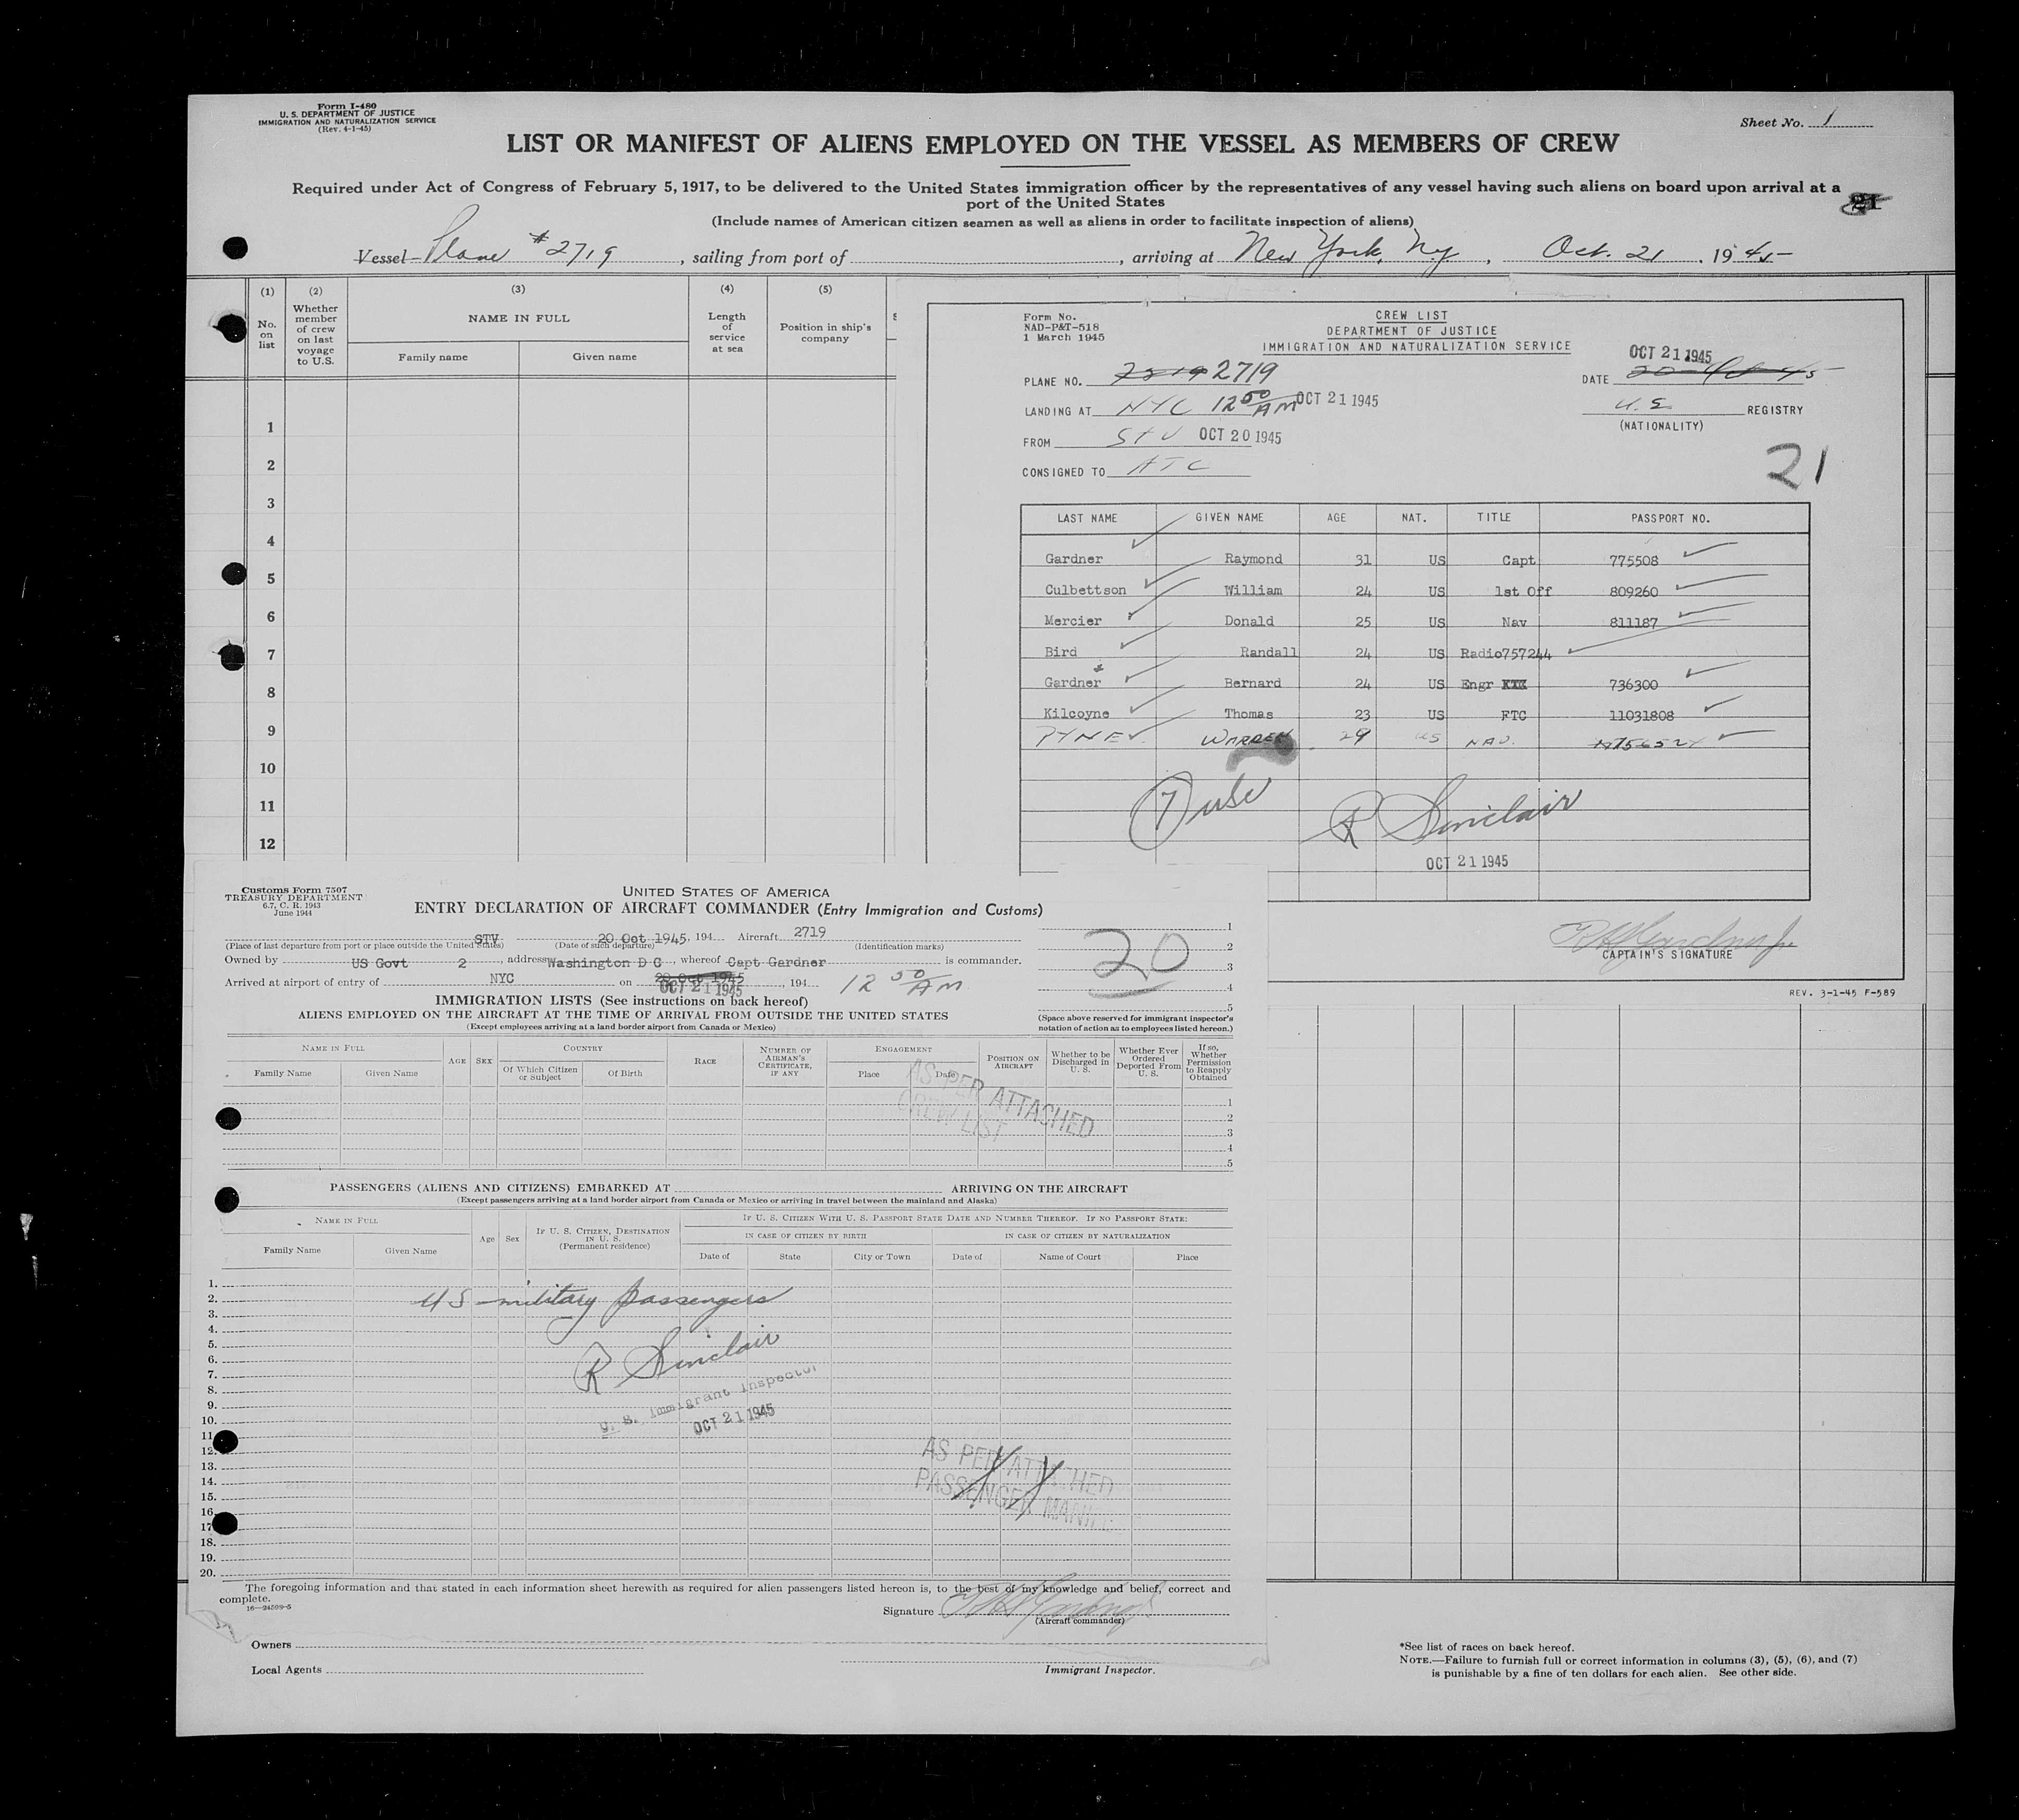 Form I-480
U. S. DEPARTMENT OF JUSTICE
IMMIGRATION AND NATURALIZATION SERVICE
(Rev. 4-1-45)
Sheet No. 1
LIST OR MANIFEST OF ALIENS EMPLOYED ON THE VESSEL AS MEMBERS OF CREW
Required under Act of Congress of February 5, 1917, to be delivered to the United States immigration officer by the representatives of any vessel having such aliens on board upon arrival at a
port of the United States
21
(Include names of American citizen seamen as well as aliens in order to facilitate inspection of aliens)
Vessel Plane #2719, sailing from port of , arriving at New York, N.Y., Oct. 21, 1945
(1) (2) (3) (4) (5)
No. on list
Whether member of crew on last voyage to U.S.
NAME IN FULL
Family name Given name
Length of service at sea
Position in ship's company
1
2
3
4
5
6
7
8
9
10
11
12
Form No.
NAD-P&T-518
1 March 1945
CREW LIST
DEPARTMENT OF JUSTICE
IMMIGRATION AND NATURALIZATION SERVICE
OCT 21 1945
PLANE NO. 2719
DATE
LANDING AT NYC 12 50 AM OCT 21 1945
U.S. REGISTRY
(NATIONALITY)
FROM STV OCT 20 1945
CONSIGNED TO ATC
21
LAST NAME GIVEN NAME AGE NAT. TITLE PASSPORT NO.
Gardner Raymond 31 US Capt 775508
Culbettson William 24 US 1st Off 809260
Mercier Donald 25 US Nav 811187
Bird Randall 24 US Radio 757244
Gardner Bernard 24 US Engr 736300
Kilcoyne Thomas 23 US FTC 11031808
PYNE WARREN 29 US NAV.
7
R Sinclair
OCT 21 1945
CAPTAIN'S SIGNATURE
REV. 3-1-45 F-589
Customs Form 7507
TREASURY DEPARTMENT
6.7, C. R. 1943
June 1944
UNITED STATES OF AMERICA
ENTRY DECLARATION OF AIRCRAFT COMMANDER (Entry Immigration and Customs)
STV 20 Oct 1945, 194 Aircraft 2719
(Place of last departure from port or place outside the United States) (Date of such departure) (Identification marks)
Owned by US Govt 2, address Washington D C, whereof Capt Gardner is commander.
Arrived at airport of entry of NYC on 20 Oct 1945 OCT 21 1945, 194 12 50 AM
20
1
2
3
4
5
IMMIGRATION LISTS (See instructions on back hereof)
ALIENS EMPLOYED ON THE AIRCRAFT AT THE TIME OF ARRIVAL FROM OUTSIDE THE UNITED STATES
(Except employees arriving at a land border airport from Canada or Mexico)
(Space above reserved for immigrant inspector's notation of action as to employees listed hereon.)
NAME IN FULL
Family Name Given Name
AGE SEX
COUNTRY
Of Which Citizen or Subject Of Birth
RACE
NUMBER OF AIRMAN'S CERTIFICATE, IF ANY
ENGAGEMENT
Place Date
POSITION ON AIRCRAFT
Whether to be Discharged in U. S.
Whether Ever Ordered Deported From U. S.
If so, Whether Permission to Reapply Obtained
AS PER ATTACHED
CREW LIST
1
2
3
4
5
PASSENGERS (ALIENS AND CITIZENS) EMBARKED AT ARRIVING ON THE AIRCRAFT
(Except passengers arriving at a land border airport from Canada or Mexico or arriving in travel between the mainland and Alaska)
NAME IN FULL
Family Name Given Name
Age Sex
IF U. S. CITIZEN, DESTINATION IN U. S.
(Permanent residence)
IF U. S. CITIZEN WITH U. S. PASSPORT STATE DATE AND NUMBER THEREOF. IF NO PASSPORT STATE:
IN CASE OF CITIZEN BY BIRTH IN CASE OF CITIZEN BY NATURALIZATION
Date of State City or Town Date of Name of Court Place
1.
2.
3.
4.
5.
6.
7.
8.
9.
10.
11.
12.
13.
14.
15.
16.
17.
18.
19.
20.
US military passengers
R Sinclair
U. S. Immigrant Inspector
OCT 21 1945
AS PER ATTACHED
PASSENGER MANIF
The foregoing information and that stated in each information sheet herewith as required for alien passengers listed hereon is, to the best of my knowledge and belief, correct and
complete.
16-24509-5
Signature
(Aircraft commander)
Owners
Local Agents
Immigrant Inspector.
*See list of races on back hereof.
NOTE.—Failure to furnish full or correct information in columns (3), (5), (6), and (7)
is punishable by a fine of ten dollars for each alien. See other side.